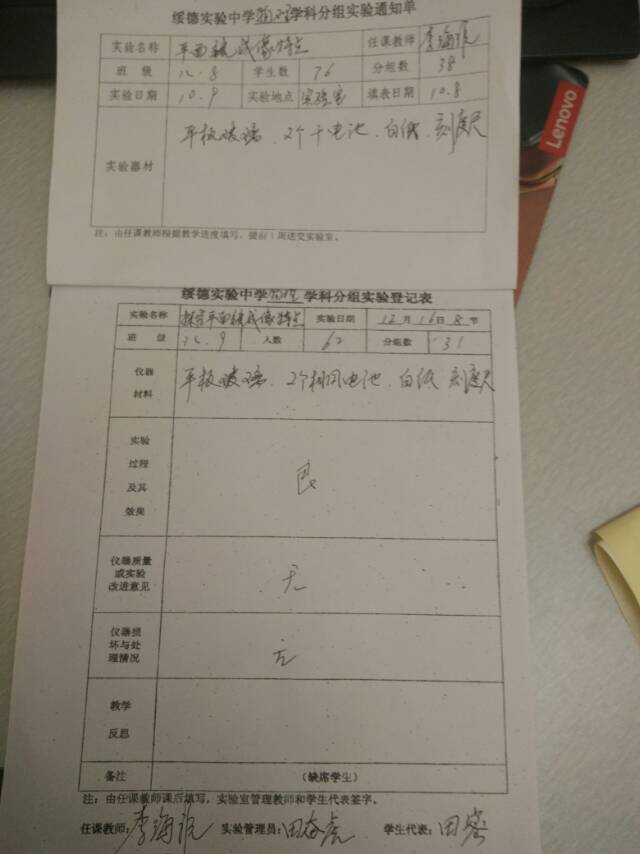 绥德实验中学物理学科分组实验通知单
实验名称 平面镜成像特点 任课教师 李海
班级 八.8 学生数 76 分组数 38
实验日期 10.9 实验地点 实验室 填表日期 10.8
实验器材 平板玻璃、2个干电池、白纸、刻度尺
注：由任课教师根据教学进度填写，提前1周送交实验室。
Lenovo
绥德实验中学物理学科分组实验登记表
实验名称 探究平面镜成像特点 实验日期 12月16日8节
班级 八.9 人数 62 分组数 31
仪器材料 平板玻璃、2个相同电池、白纸 刻度尺
实验过程及其效果 良
仪器质量或实验改进意见 无
仪器损坏与处理情况 无
教学反思
备注 (缺席学生)
注：由任课教师课后填写，实验室管理教师和学生代表签字。
任课教师：李海 实验管理员：田 学生代表：田